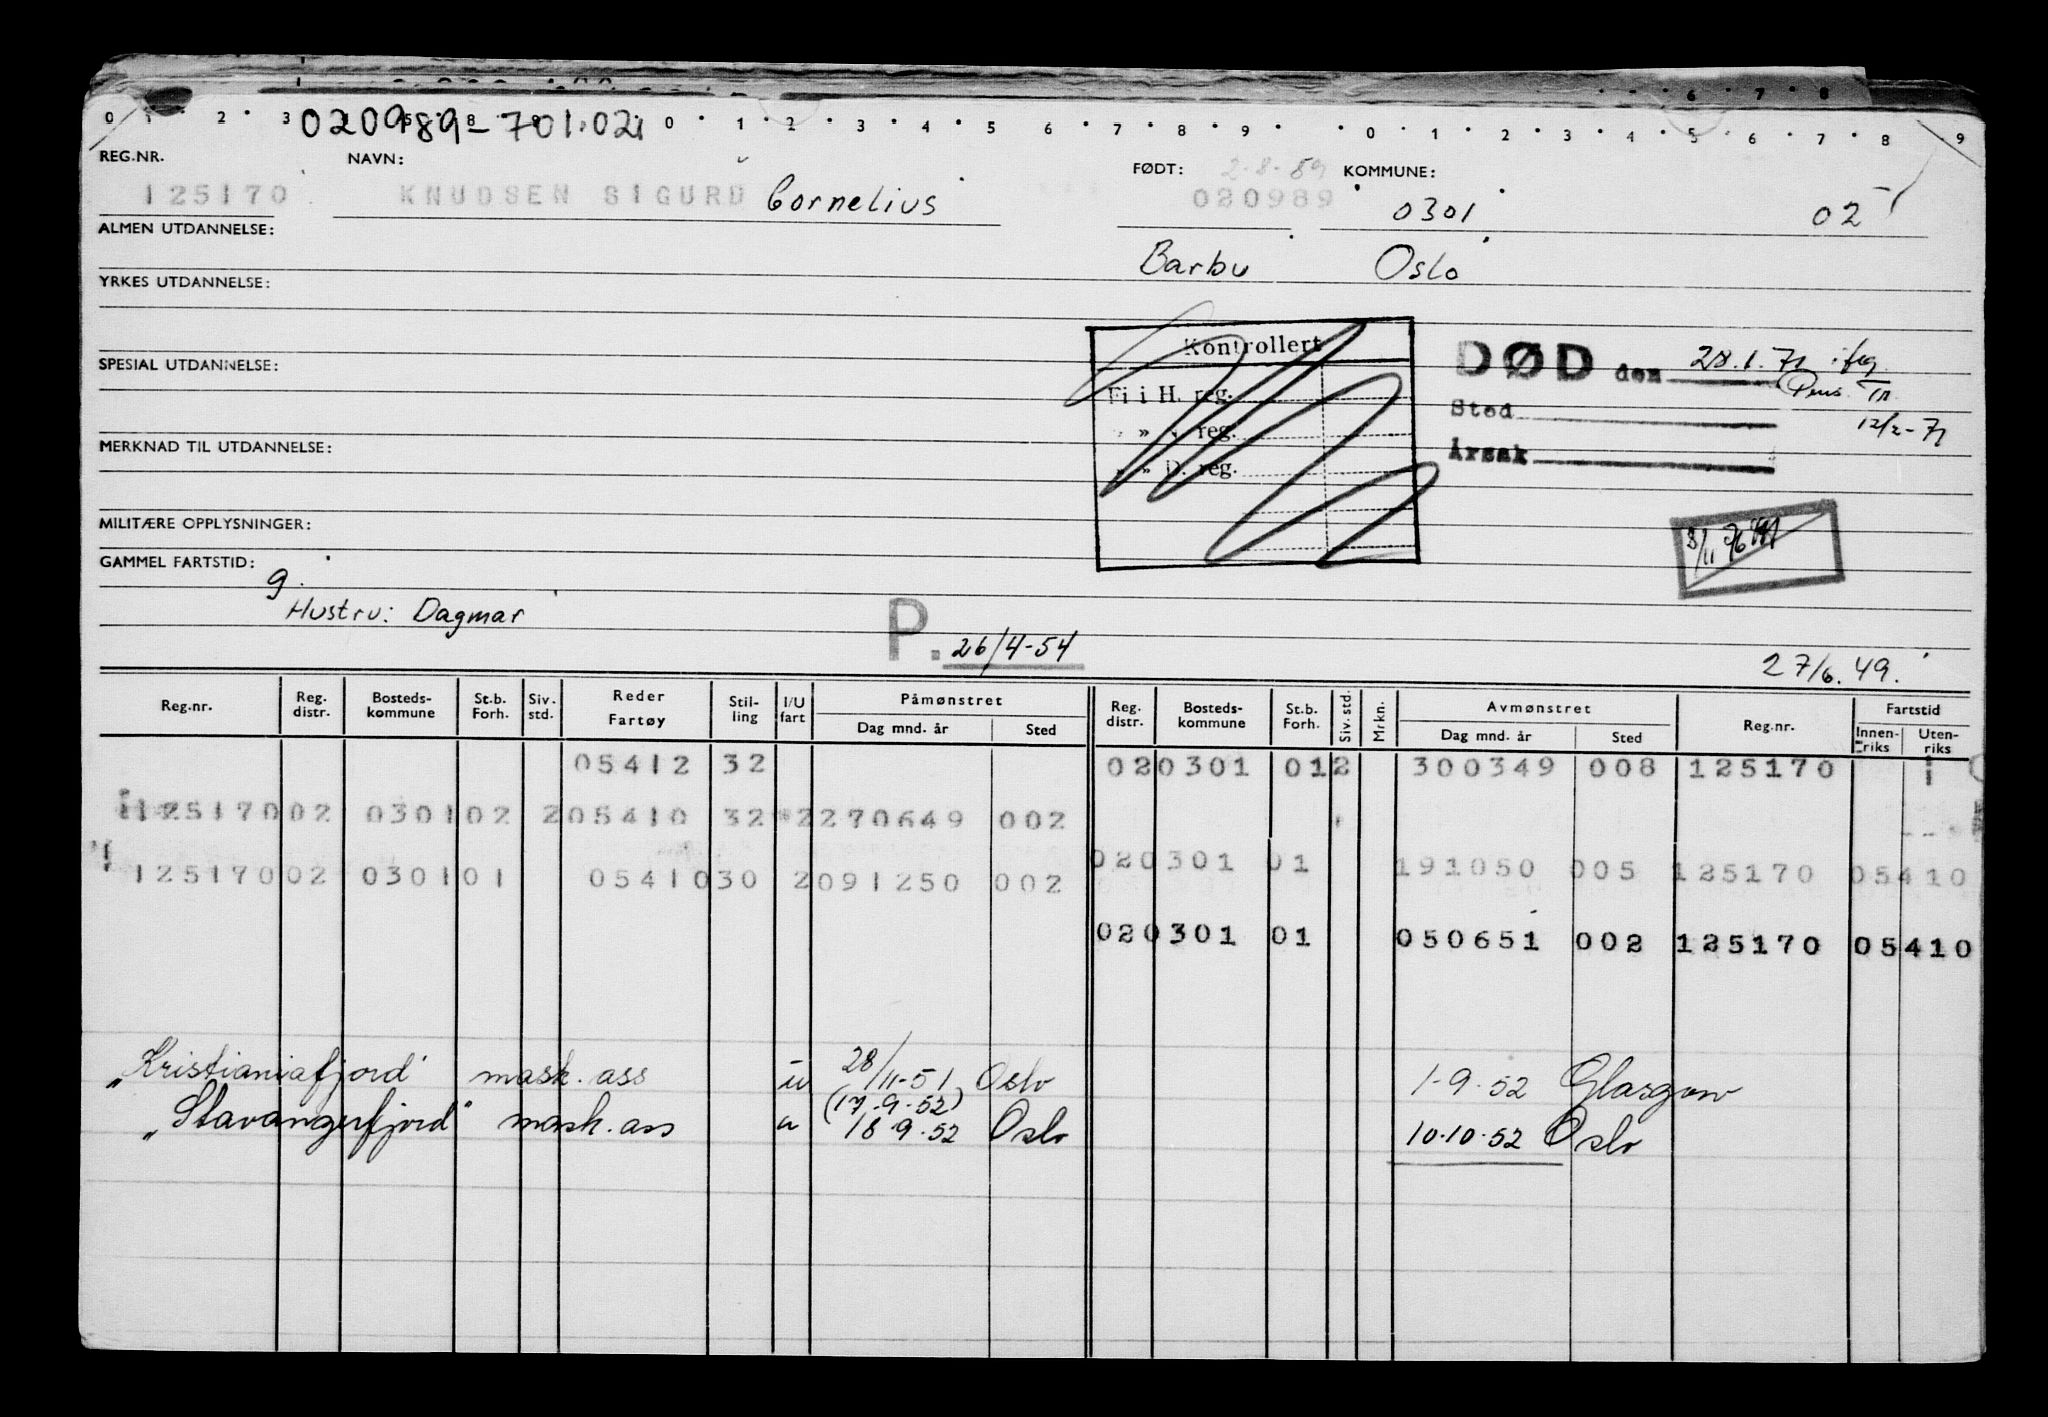 020989-701.02
REG.NR. NAVN: FØDT: 2-8-89 KOMMUNE:
125170 KNUDSEN SIGURD Cornelius 020989 0301 02
ALMEN UTDANNELSE:
Barbu Oslo
YRKES UTDANNELSE:
Kontrollert
DØD den 28.1.71 iføg
SPESIAL UTDANNELSE:
Fi i H. reg. Pens. Tr.
Sted 12/2-71
» » V. reg.
MERKNAD TIL UTDANNELSE:
Årsak
» » D. reg.
MILITÆRE OPPLYSNINGER:
GAMMEL FARTSTID:
g.
Hustru: Dagmar
P. 26/4-54
27/6.49.
Reg.nr. Reg. distr. Bosteds-kommune St.b. Forh. Siv. std. Reder Fartøy Stil-ling I/U fart Påmønstret Dag mnd. år Sted Reg. distr. Bosteds-kommune St.b. Forh. Siv. std. Mrkn. Avmønstret Dag mnd. år Sted Reg.nr. Fartstid Innen-riks Uten-riks
05412 32 020301 012 300349 008 125170
125170 02 0301 02 2 05410 32 2 270649 002
020301 01 191050 005 125170 05410
125170 02 0301 01 05410 30 2 091250 002
020301 01 050651 002 125170 05410
"Kristianiafjord" mask. ass u 28/11-51 Oslo 1-9.52 Glasgow
(17.9.52)
"Stavangerfjord" mask. ass u 18.9.52 Oslo 10.10.52 Oslo